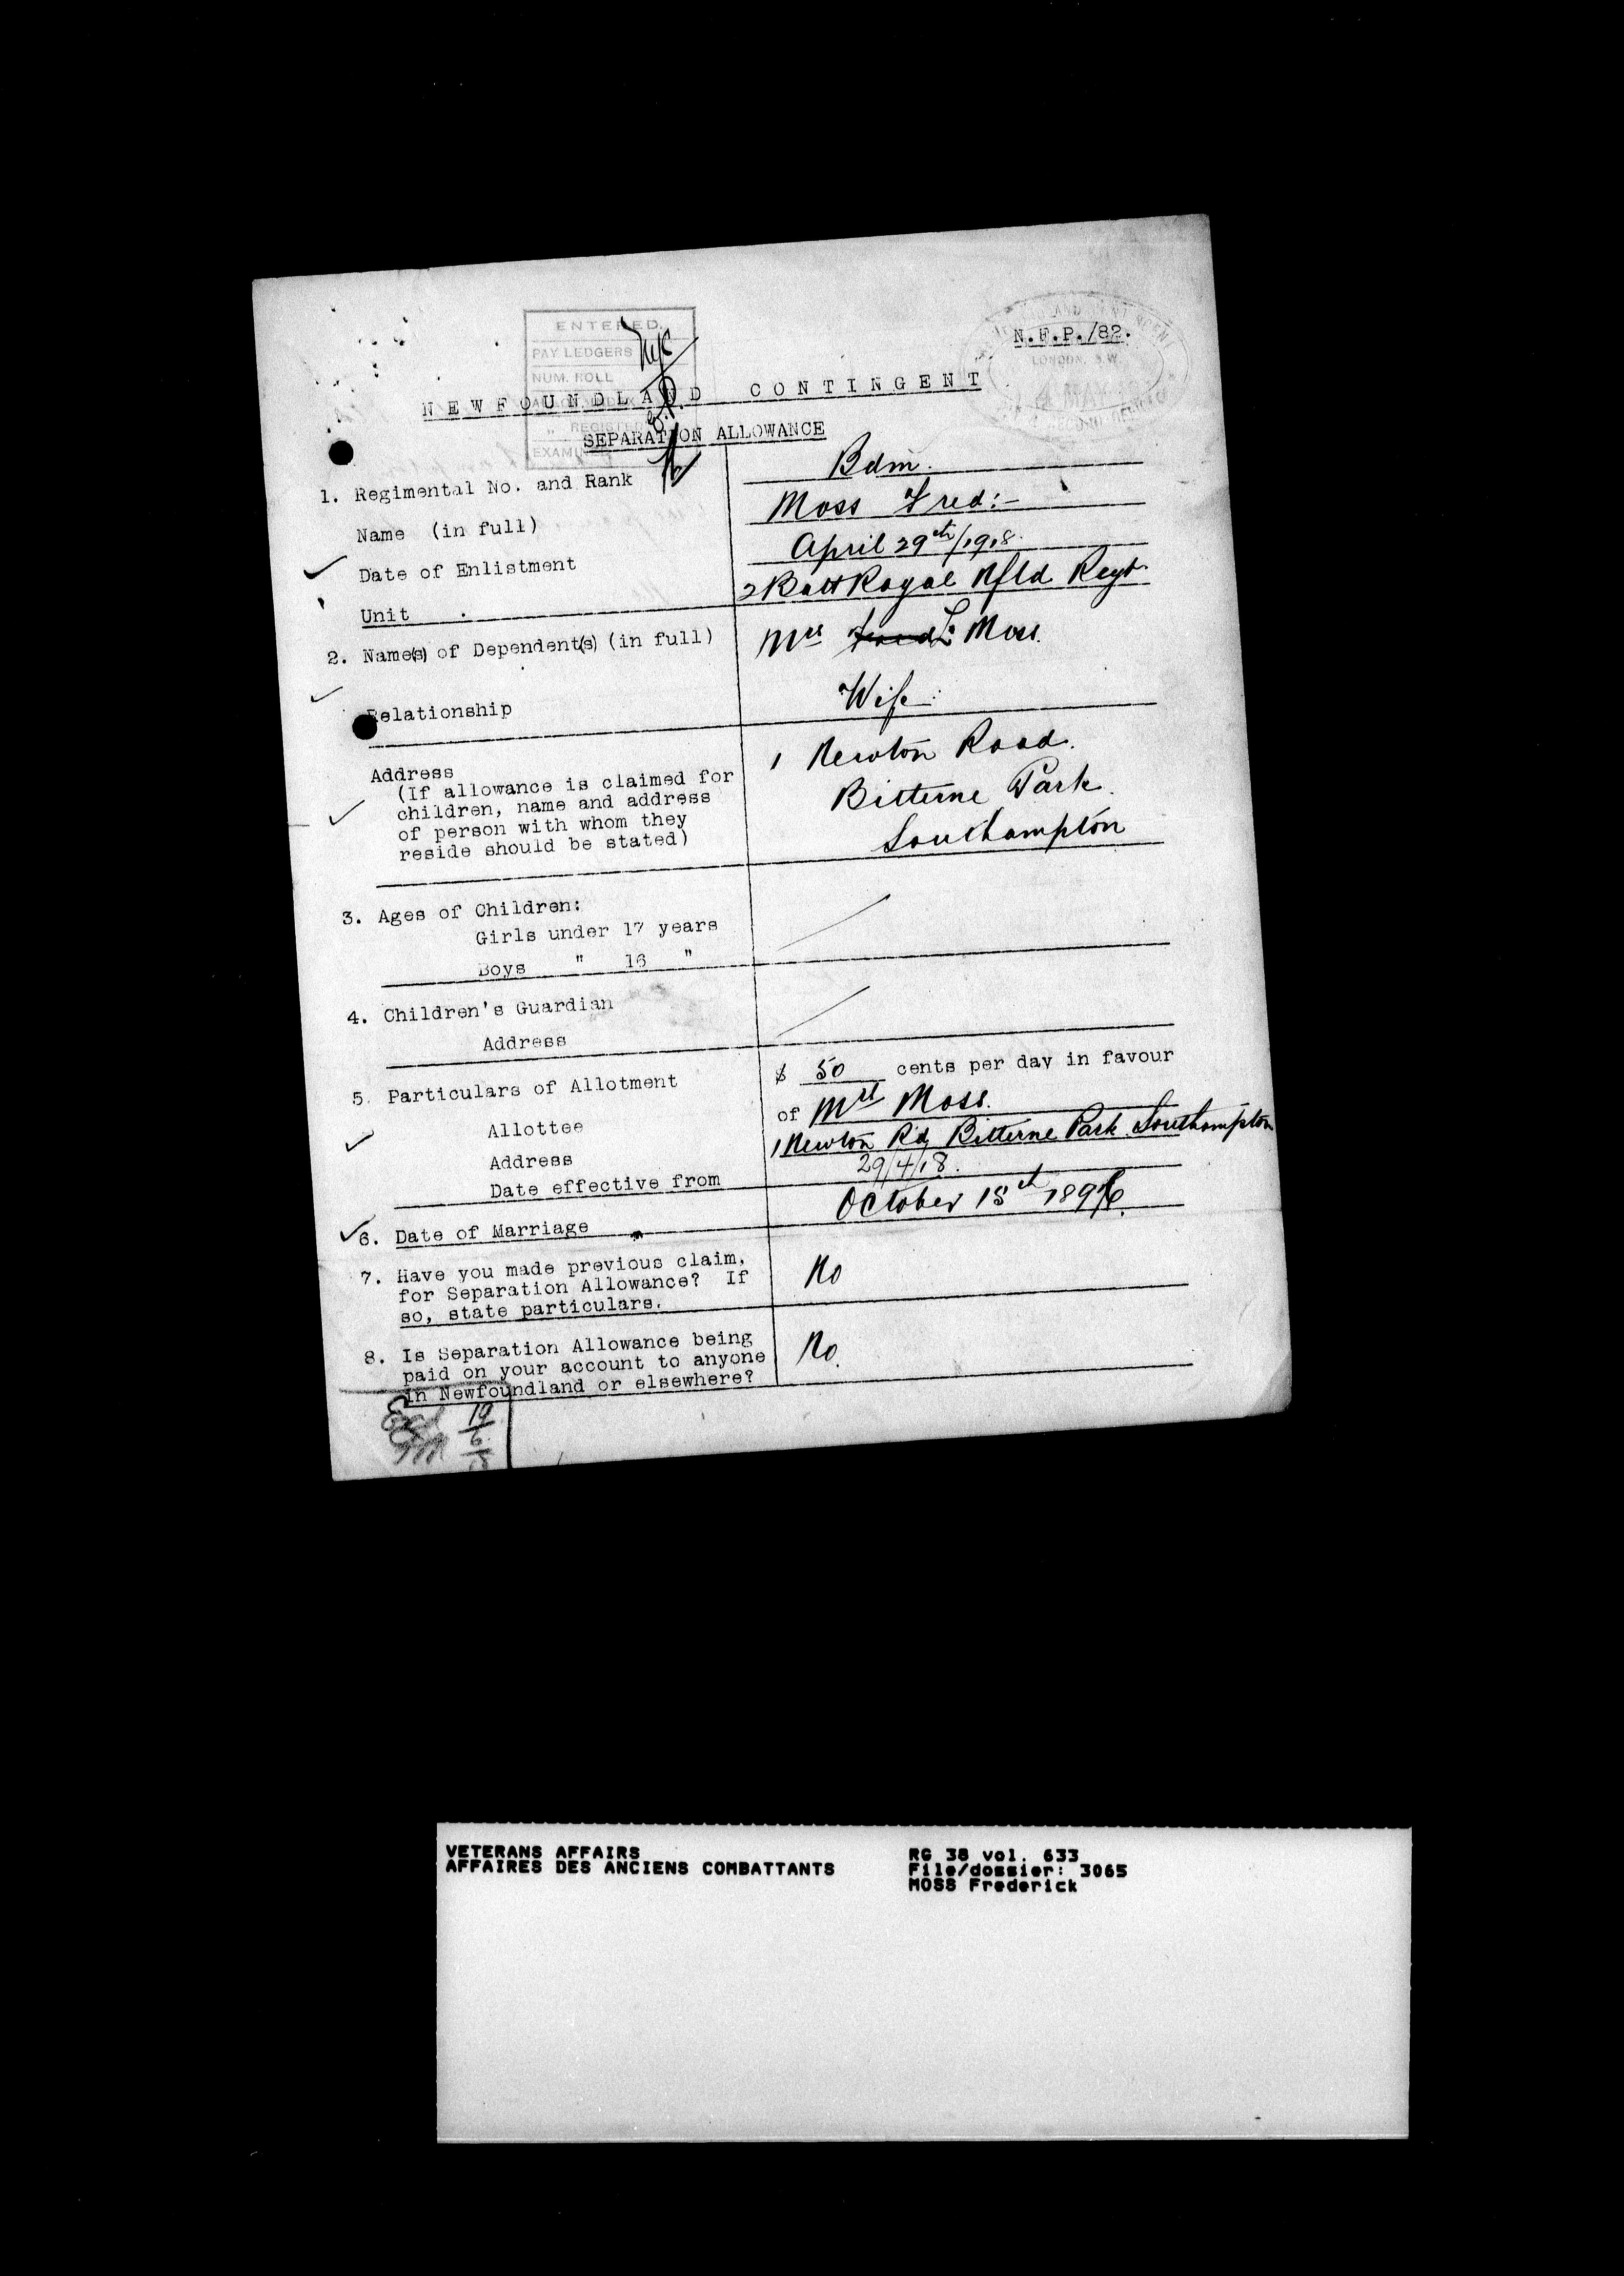 ENTERED.
PAY LEDGERS
NUM. ROLL
" REGISTER
EXAMINED
N.F.P./82.
LONDON, S.W.
MAY
NEWFOUNDLAND CONTINGENT
SEPARATION ALLOWANCE
1. Regimental No. and Rank Bdm.
Name (in full) Moss Fred:-
Date of Enlistment April 29th/1918.
Unit . 2 Batt Royal Nfld Regt.
2. Name(s) of Dependent(s) (in full) Mrs Fred L. Moss.
Relationship Wife.
Address 1 Newton Road.
(If allowance is claimed for
children, name and address Bitterne Park.
of person with whom they
reside should be stated) Southampton
3. Ages of Children:
Girls under 17 years
Boys " 16 "
4. Children's Guardian
Address
5. Particulars of Allotment $ 50 cents per day in favour
Allottee of Mrs Moss.
Address 1 Newton Rd, Bitterne Park Southampton
Date effective from 29/4/18.
6. Date of Marriage October 15th 1896.
7. Have you made previous claim,
for Separation Allowance? If No
so, state particulars.
8. Is Separation Allowance being
paid on your account to anyone No.
in Newfoundland or elsewhere?
19
6
18
VETERANS AFFAIRS RG 38 vol. 633
AFFAIRES DES ANCIENS COMBATTANTS File/dossier: 3065
MOSS Frederick